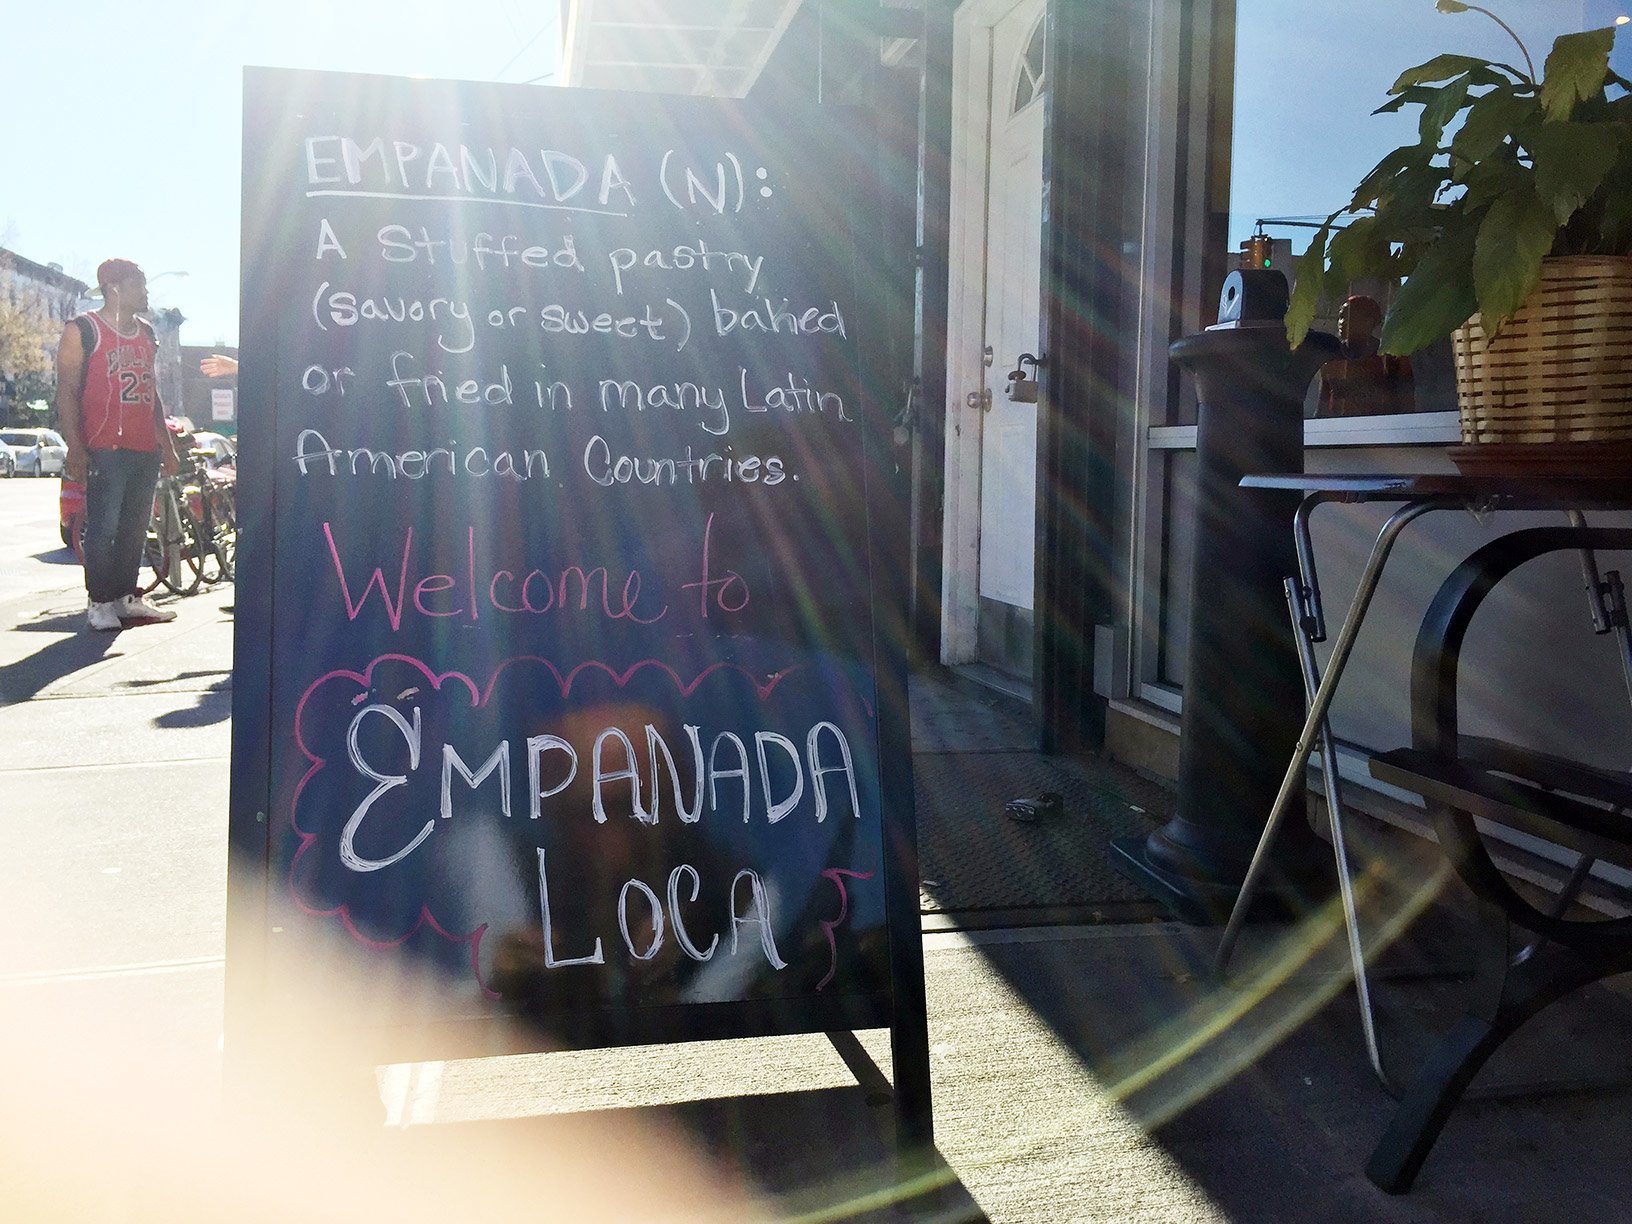 EMPANADA (N):
A Stuffed pastry
(savory or sweet) baked
or fried in many Latin
American Countries.
Welcome to
EMPANADA
LOCA
BULLS
23